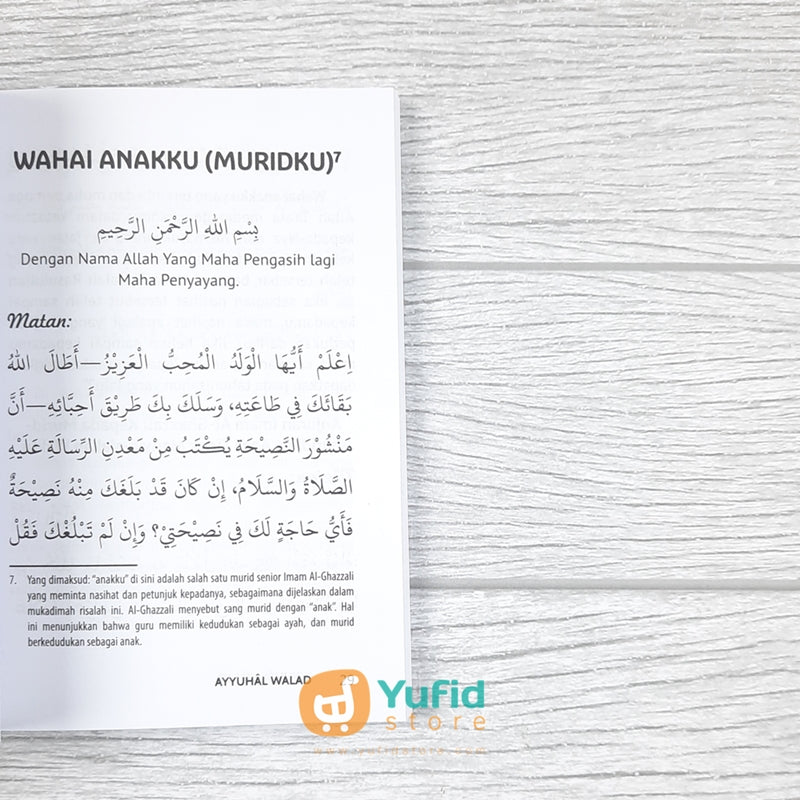 WAHAI ANAKKU (MURIDKU)⁷
بِسْمِ اللهِ الرَّحْمَنِ الرَّحِيمِ
Dengan Nama Allah Yang Maha Pengasih lagi
Maha Penyayang.
Matan:
اِعْلَمْ أَيُّهَا الْوَلَدُ الْمُحِبُّ الْعَزِيْزُ—أَطَالَ اللهُ
بَقَائَكَ فِي طَاعَتِهِ، وَسَلَكَ بِكَ طَرِيْقَ أَحِبَّائِهِ—أَنَّ
مَنْشُوْرَ النَّصِيْحَةِ يُكْتَبُ مِنْ مَعْدِنِ الرِّسَالَةِ عَلَيْهِ
الصَّلَاةُ وَالسَّلَامُ، إِنْ كَانَ قَدْ بَلَغَكَ مِنْهُ نَصِيْحَةٌ
فَأَيُّ حَاجَةٍ لَكَ فِي نَصِيْحَتِيْ؟ وَإِنْ لَمْ تَبْلُغْكَ فَقُلْ
7. Yang dimaksud: "anakku" di sini adalah salah satu murid senior Imam Al-Ghazzali
yang meminta nasihat dan petunjuk kepadanya, sebagaimana dijelaskan dalam
mukadimah risalah ini. Al-Ghazzali menyebut sang murid dengan "anak". Hal
ini menunjukkan bahwa guru memiliki kedudukan sebagai ayah, dan murid
berkedudukan sebagai anak.
AYYUHÂL WALAD 29
Yufid
store
www.yufidstore.com